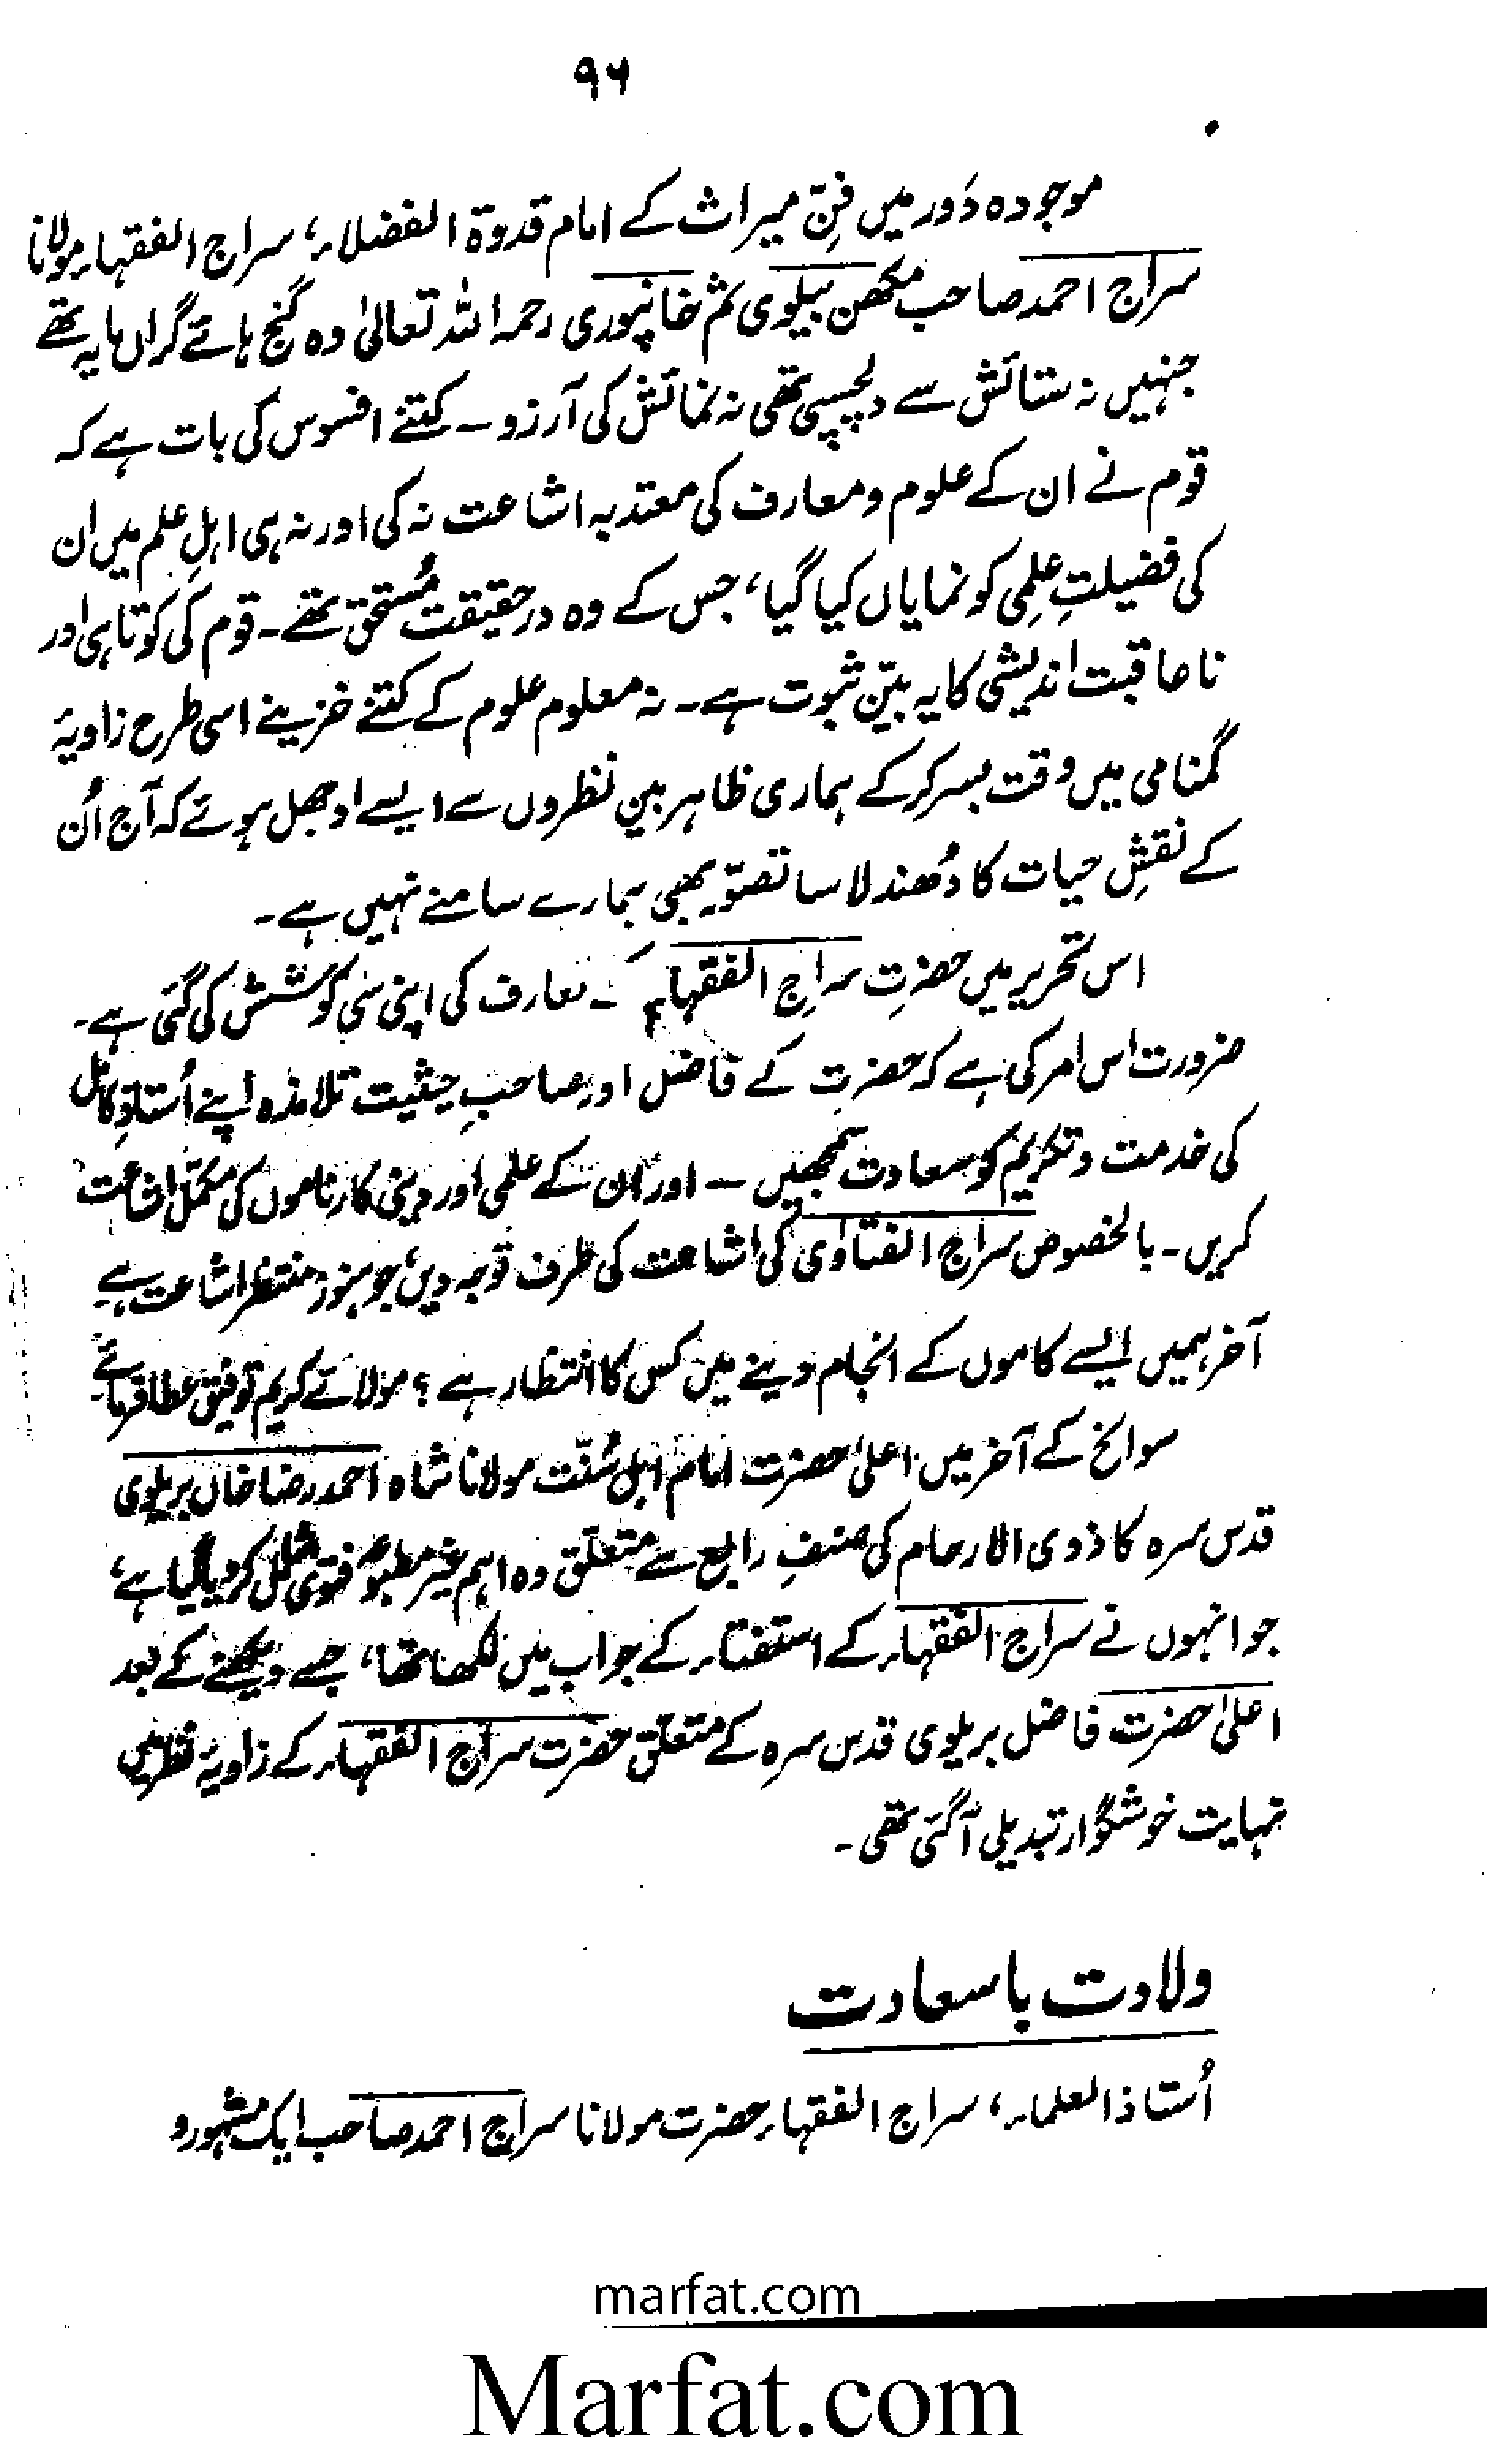 ۹۶
موجودہ دَور میں فنِّ میراث کے امام قدوۃ الفضلاء، سراج الفقہاء مولانا
سراج احمد صاحب مکھن بیلوی ثم خانپوری رحمہ اللہ تعالیٰ وہ گنج ہائے گراں مایہ تھے
جنہیں نہ ستائش سے دلچسپی تھی نہ نمائش کی آرزو ـ کتنے افسوس کی بات ہے کہ
قوم نے ان کے علوم و معارف کی معتدبہ اشاعت نہ کی اور نہ ہی اہلِ علم میں ان
کی فضیلتِ علمی کو نمایاں کیا گیا، جس کے وہ درحقیقت مُستحق تھے۔ قوم کی کوتاہی اور
ناعاقبت اندیشی کا یہ بیّن ثبوت ہے۔ نہ معلوم علوم کے کتنے خزینے اسی طرح زاویۂ
گمنامی میں وقت بسر کر کے ہماری ظاہر بین نظروں سے ایسے اوجھل ہوئے کہ آج اُن
کے نقشِ حیات کا دُھندلا سا تصوّر بھی ہمارے سامنے نہیں ہے۔
اس تحریر میں حضرتِ سراج الفقہاء کے تعارف کی اپنی سی کوشش کی گئی ہے۔
ضرورت اس امر کی ہے کہ حضرت کے فاضل اور صاحبِ حیثیت تلامذہ اپنے اُستاذِ کامل
کی خدمت و تکریم کو سعادت سمجھیں ـ اور ان کے علمی اور دینی کارناموں کی مکمّل اشاعت
کریں۔ بالخصوص سراج الفتاوٰی کی اشاعت کی طرف توجہ دیں، جو ہنوز منتظرِ اشاعت ہے۔
آخر ہمیں ایسے کاموں کے انجام دینے میں کس کا انتظار ہے؟ مولائے کریم توفیق عطا فرمائے۔
سوانح کے آخر میں اعلیٰ حضرت امام اہلِ سُنّت مولانا شاہ احمد رضا خاں بریلوی
قدس سرہ کا ذوی الارحام کی صنفِ رابع سے متعلق وہ اہم غیر مطبوعہ فتویٰ شامل کر دیا گیا ہے،
جو انہوں نے سراج الفقہاء کے استفتاء کے جواب میں لکھا تھا، جسے دیکھنے کے بعد
اعلیٰ حضرت فاضل بریلوی قدس سرہ کے متعلق حضرت سراج الفقہاء کے زاویۂ نظر میں
نہایت خوشگوار تبدیلی آ گئی تھی۔
ولادت باسعادت
اُستاذ العلماء، سراج الفقہاء حضرت مولانا سراج احمد صاحب ایک مشہور و
marfat.com
Marfat.com